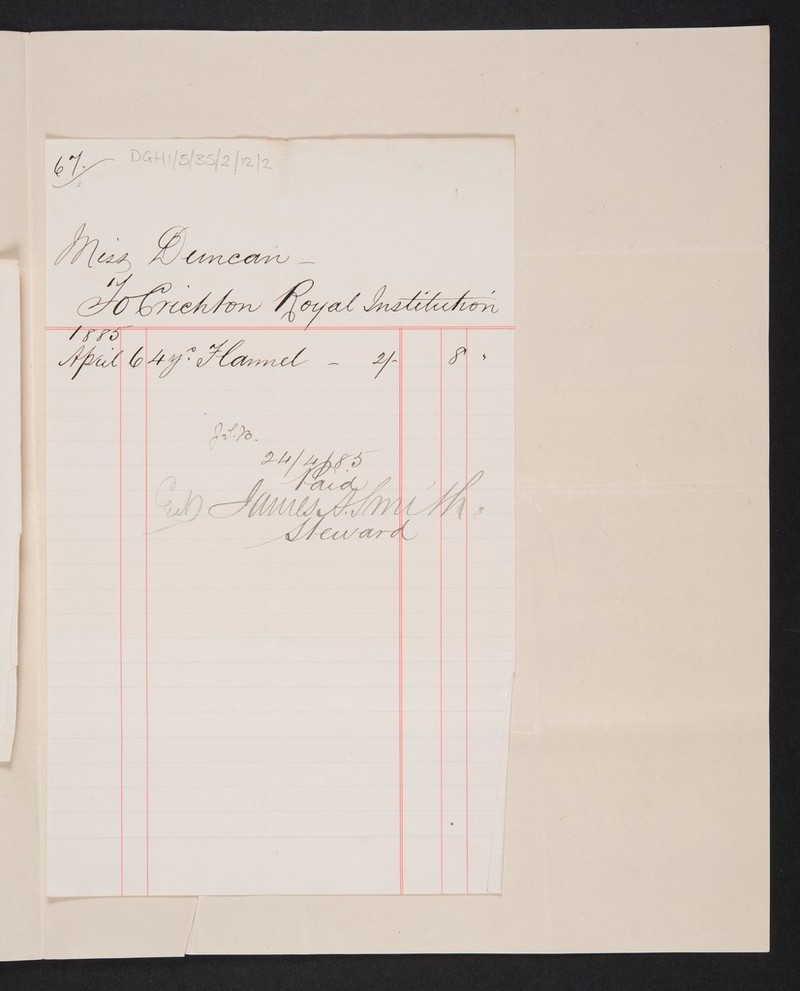 67. DGH1/5/35/2/12/2
Miss Duncan –
To Crichton Royal Institution
1885
April 6 4 yds Flannel – 2/- 8 "
24/4/85
Paid
James S. Smith.
Steward